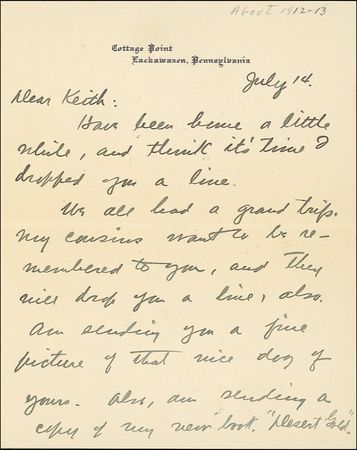 About 1912-13
Cottage Point
Lackawaxen, Pennsylvania
July 14.
Dear Keith:
Have been home a little
while, and think it's time I
dropped you a line.
We all had a grand trip.
My cousins want to be re-
membered to you, and they
will drop you a line, also.
Am sending you a fine
picture of that nice dog of
yours. Also, am sending a
copy of my new book, "Desert Gold".